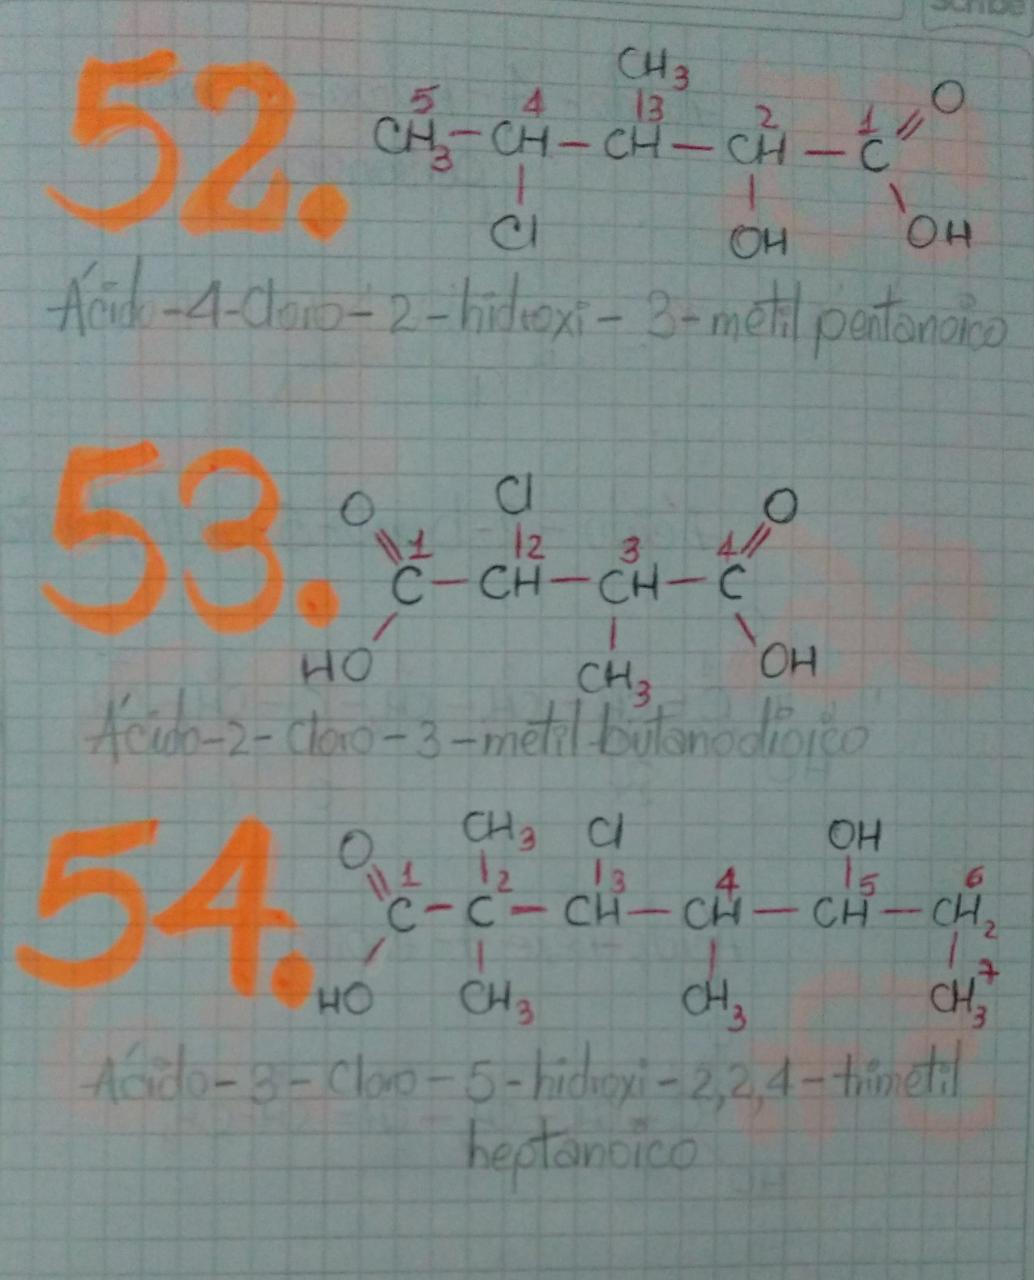 Scribe
52.
CH3
5 4 3 2 1 O
CH3 — CH — CH — CH — C
Cl OH OH
Ácido-4-Cloro-2-hidroxi-3-metil pentanoico
53.
O Cl O
1 2 3 4
C — CH — CH — C
HO CH3 OH
Ácido-2-cloro-3-metil butanodioico
54.
O CH3 Cl OH
1 2 3 4 5 6
C — C — CH — CH — CH — CH2
7
HO CH3 CH3 CH3
Ácido-3-Cloro-5-hidroxi-2,2,4-trimetil
heptanoico